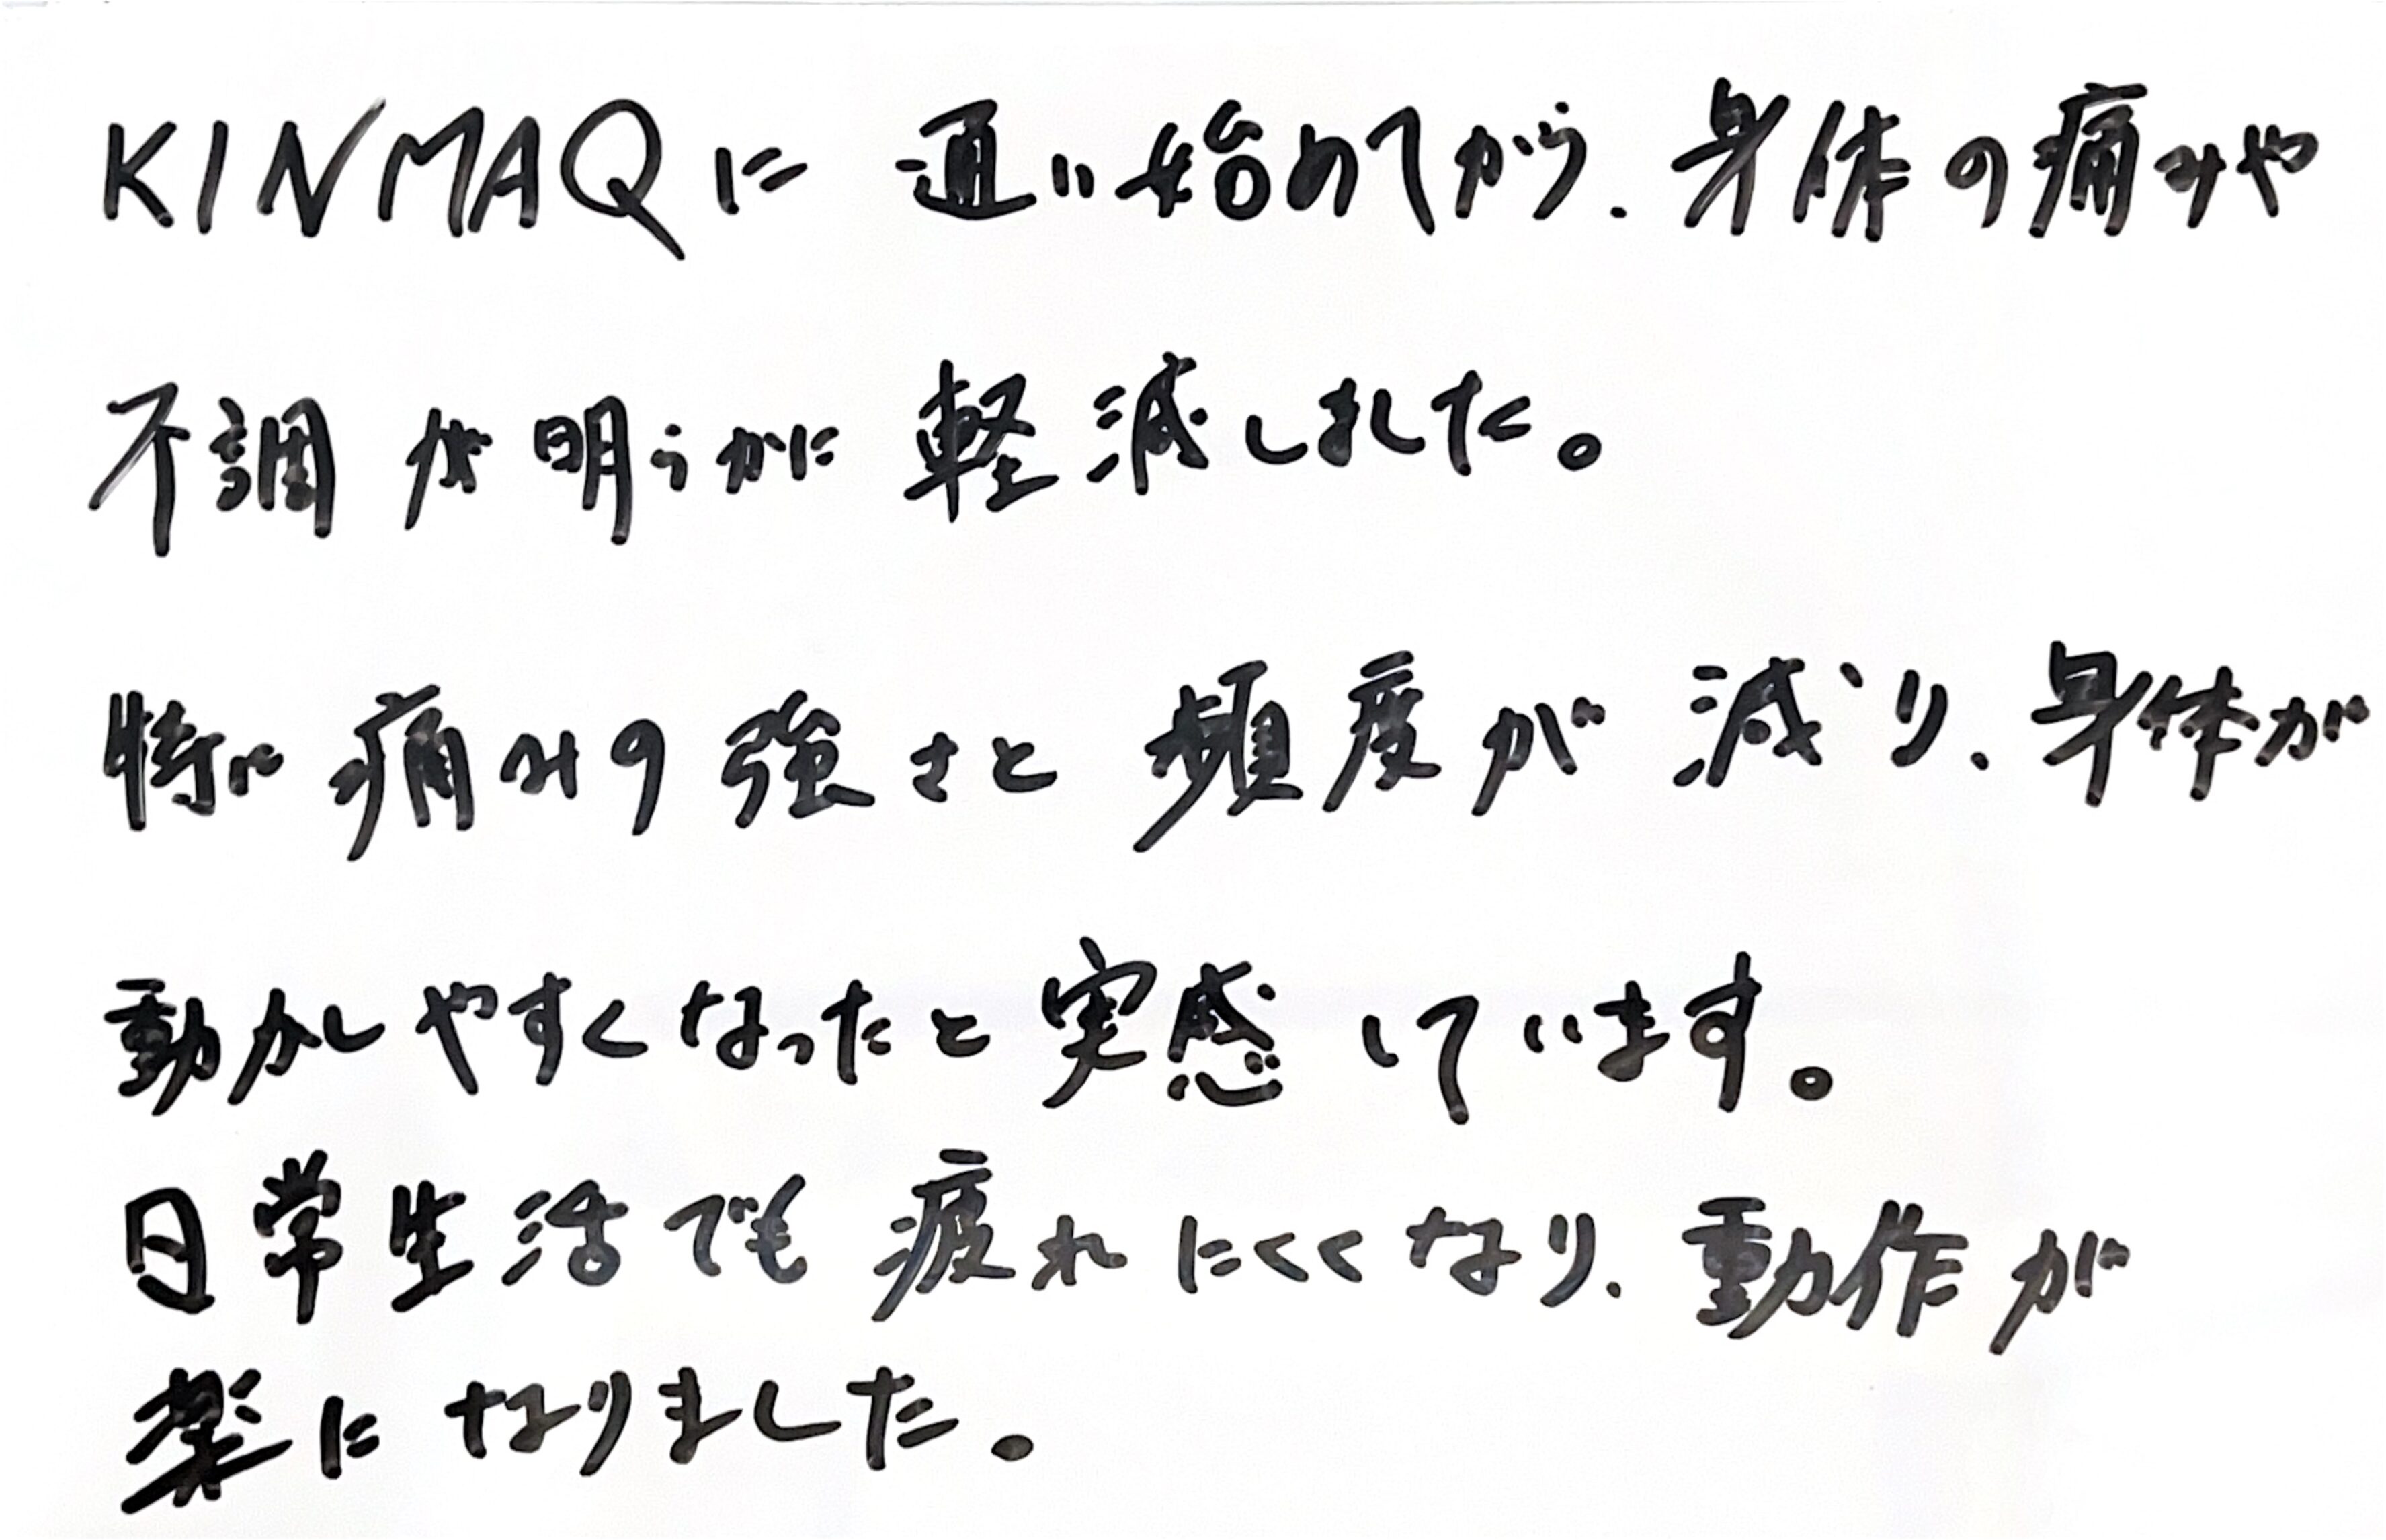 KINMAQに通い始めてから、身体の痛みや
不調が明らかに軽減しました。
特に痛みの強さと頻度が減り、身体が
動かしやすくなったと実感しています。
日常生活でも疲れにくくなり、動作が
楽になりました。